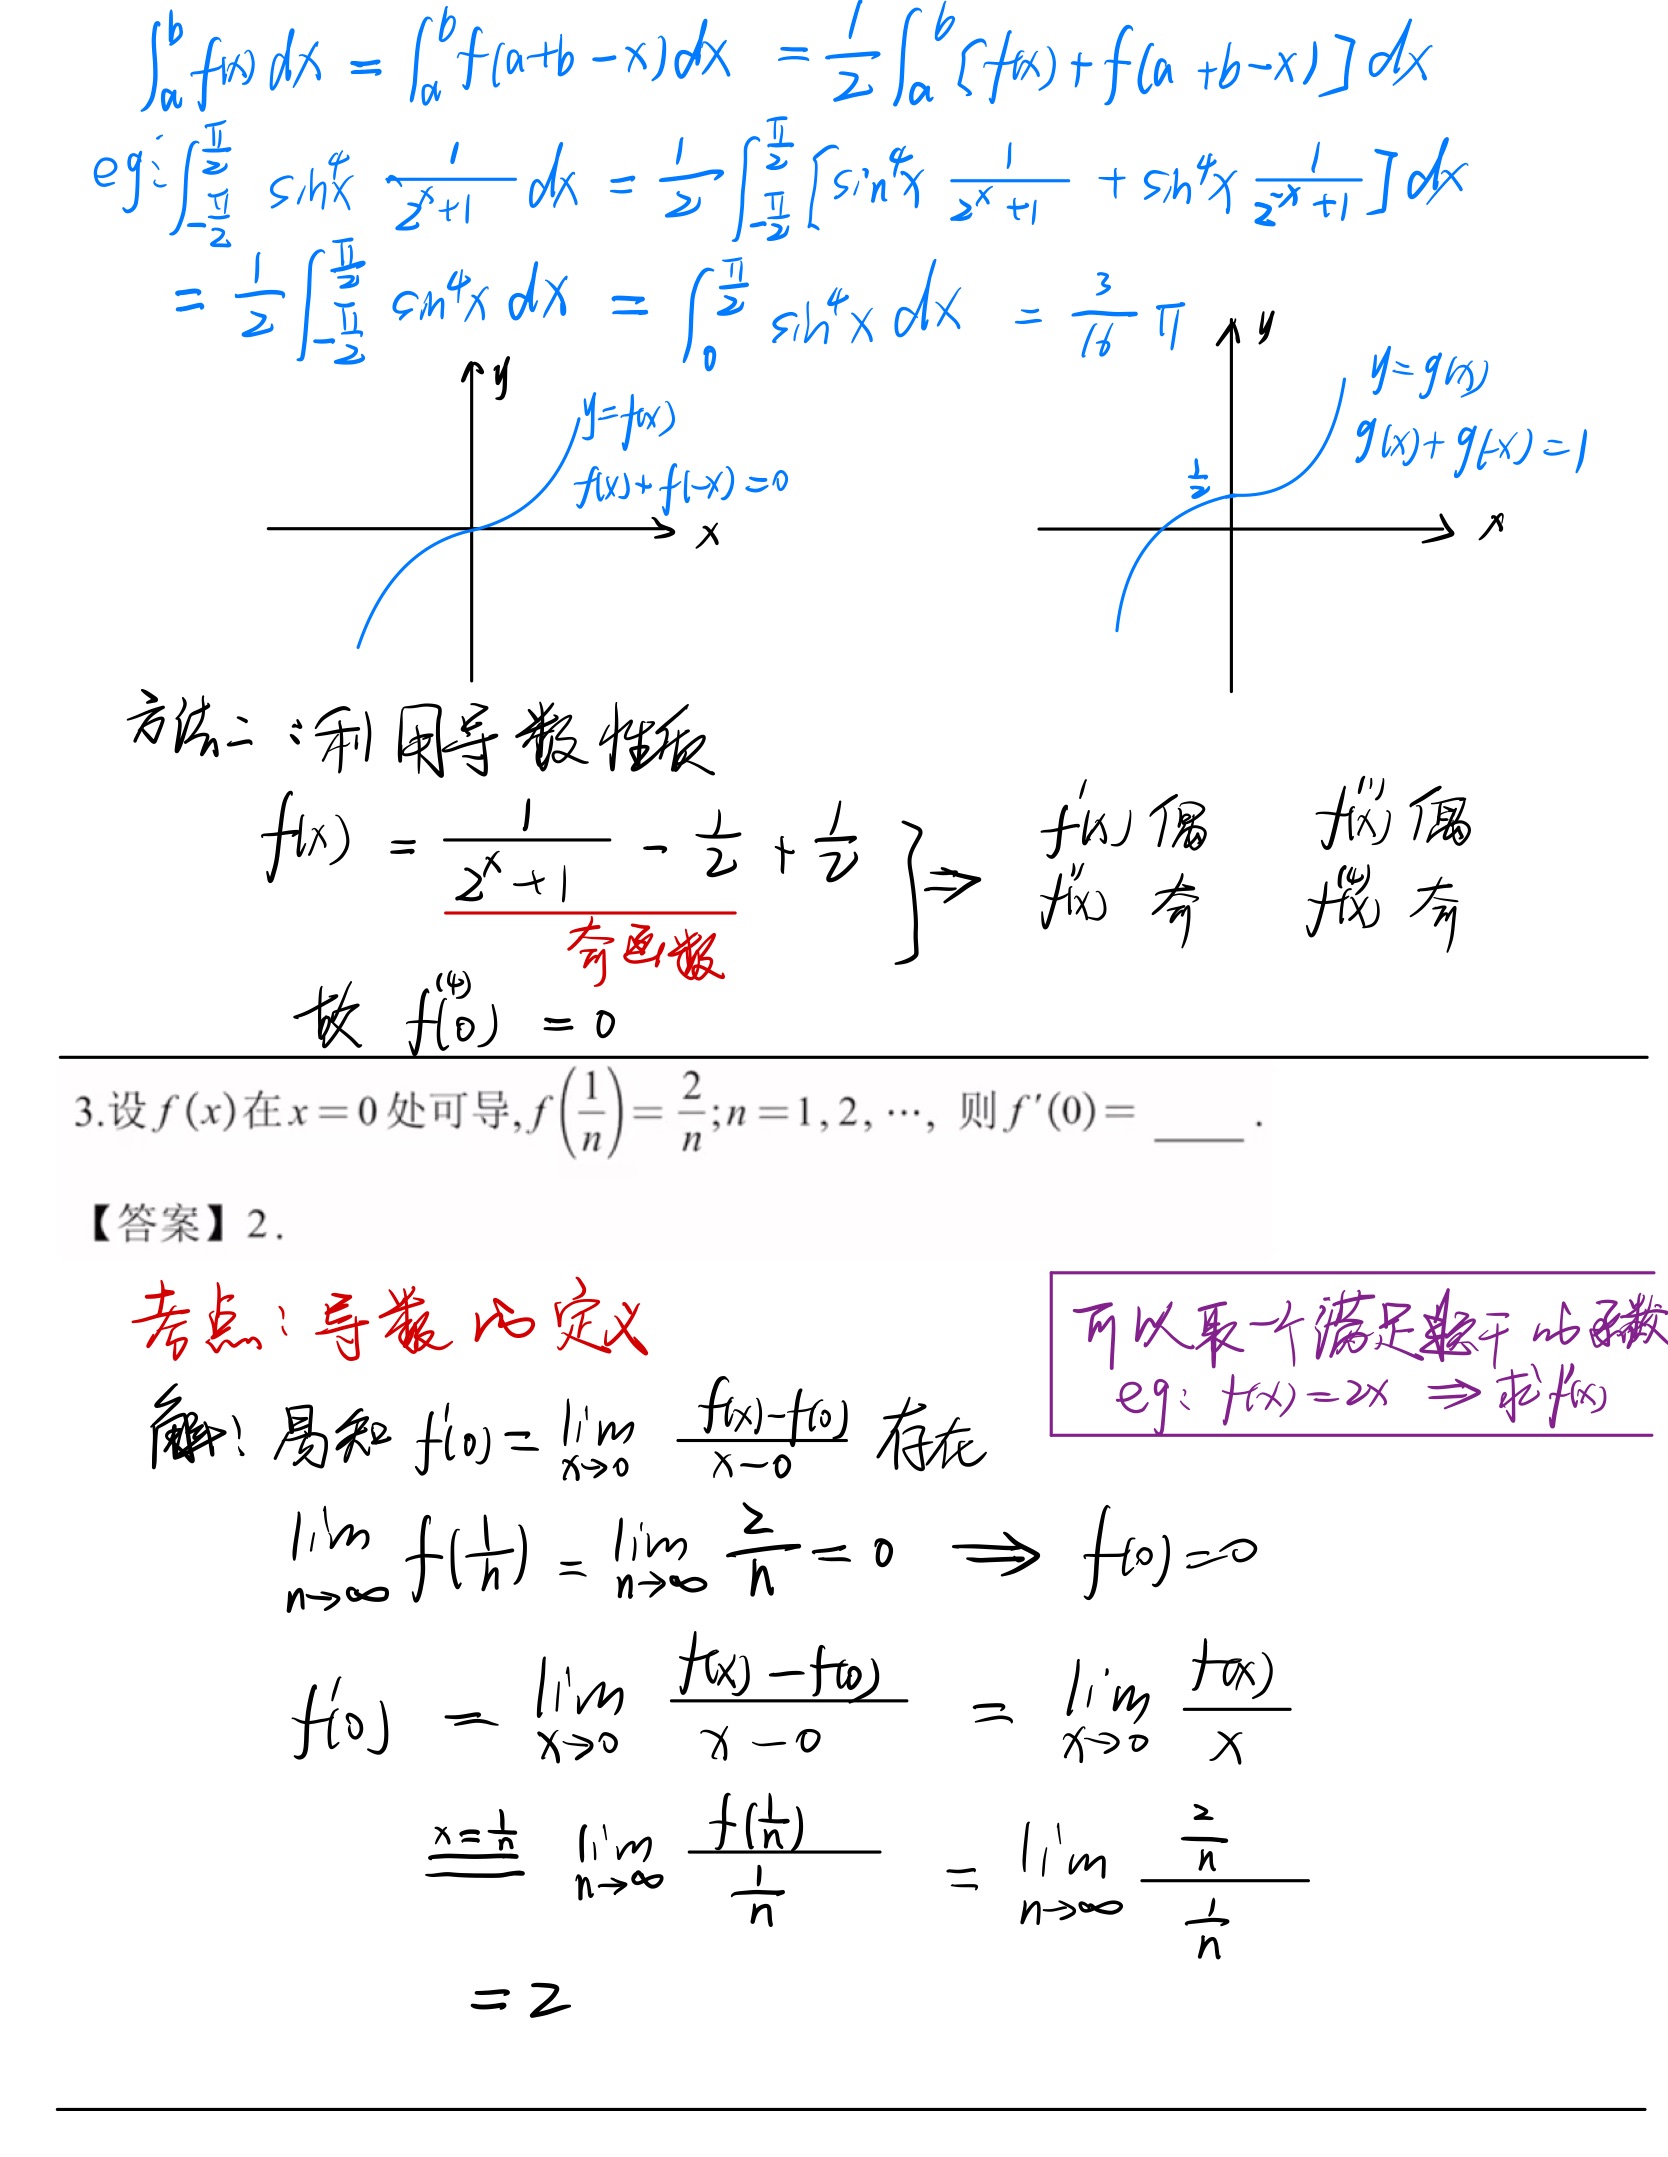 ∫_a^b f(x) dx = ∫_a^b f(a+b-x) dx = 1/2 ∫_a^b [f(x) + f(a+b-x)] dx
eg: ∫_{-π/2}^{π/2} sin⁴x 1/(2^x+1) dx = 1/2 ∫_{-π/2}^{π/2} [sin⁴x 1/(2^x+1) + sin⁴x 1/(2^{-x}+1)] dx
= 1/2 ∫_{-π/2}^{π/2} sin⁴x dx = ∫_0^{π/2} sin⁴x dx = 3/16 π
y
y=f(x)
f(x)+f(-x)=0
x
y
y=g(x)
g(x)+g(-x)=1
1/2
x
方法二:利用导数性质
f(x) = 1/(2^x+1) - 1/2 + 1/2 } ⇒ f'(x) 偶 f'''(x) 偶
f''(x) 奇 f^{(4)}(x) 奇
奇函数
故 f^{(4)}(0) = 0
3.设 f(x)在 x=0 处可导,f(1/n)=2/n;n=1,2,…, 则 f′(0)= ____ .
【答案】2.
考点:导数的定义
可以取一个满足题干的函数
eg: f(x)=2x ⇒ 求f'(x)
解:易知 f'(0)=lim_{x→0} (f(x)-f(0))/(x-0) 存在
lim_{n→∞} f(1/n) = lim_{n→∞} 2/n = 0 ⇒ f(0)=0
f'(0) = lim_{x→0} (f(x)-f(0))/(x-0) = lim_{x→0} f(x)/x
x=1/n lim_{n→∞} f(1/n)/(1/n) = lim_{n→∞} (2/n)/(1/n)
=2